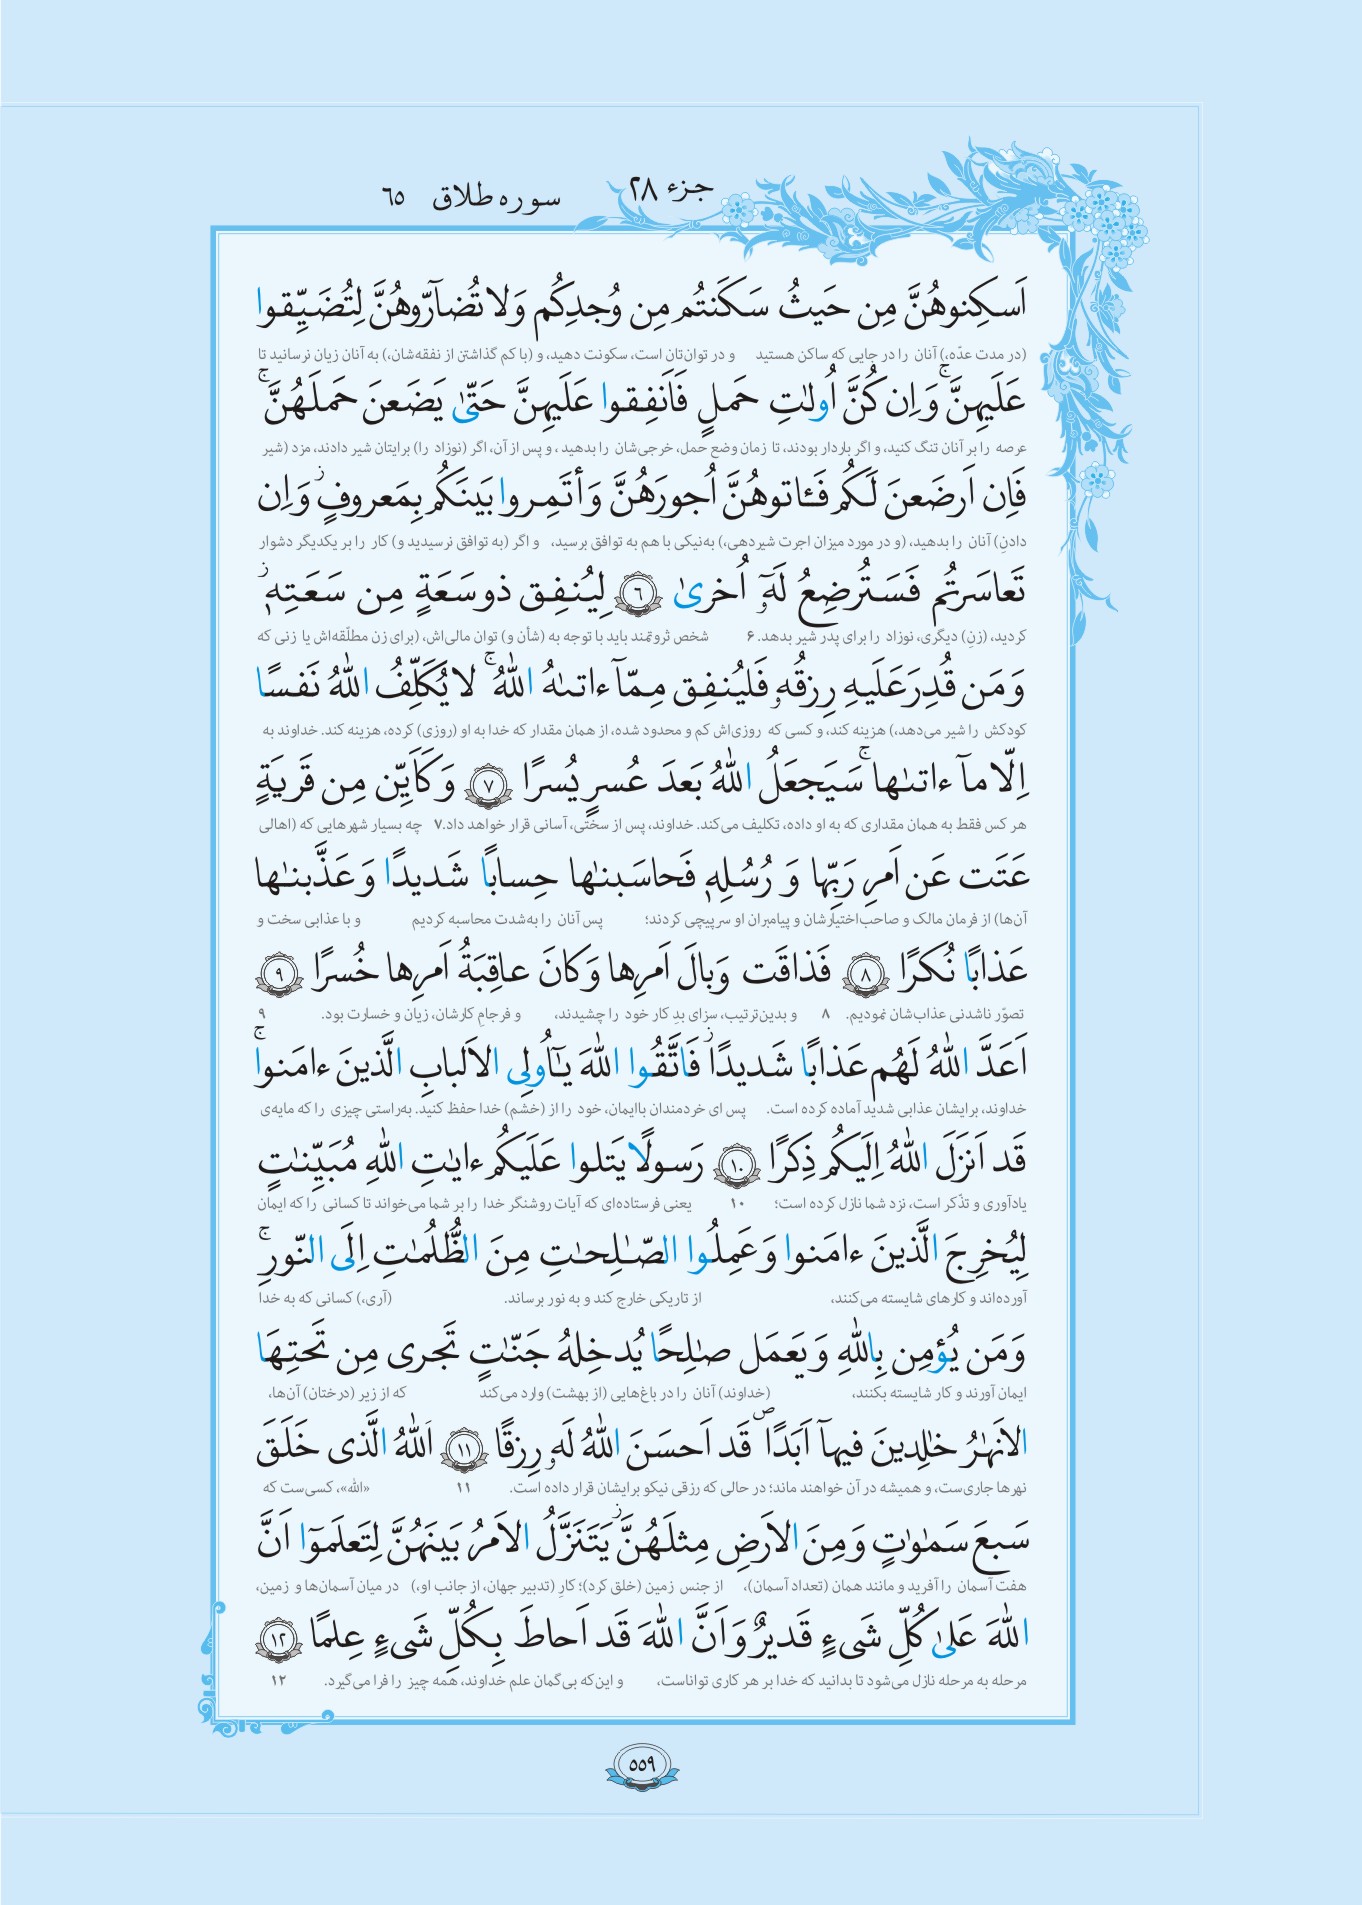 جزء ۲۸
سوره طلاق ۶۵
اَسكِنوهُنَّ مِن حَيثُ سَكَنتُم مِن وُجدِكُم وَلا تُضآرّوهُنَّ لِتُضَيِّقوا
(در مدت عدّه،) آنان را در جایی که ساکن هستید و در توان‌تان است، سکونت دهید، و (با کم گذاشتن از نفقه‌شان،) به آنان زیان نرسانید تا
عَلَيهِنَّ ۚ وَاِن كُنَّ اُولاتِ حَملٍ فَاَنفِقوا عَلَيهِنَّ حَتّىٰ يَضَعنَ حَملَهُنَّ ۚ
عرصه را بر آنان تنگ کنید، و اگر باردار بودند، تا زمان وضع حمل، خرجی‌شان را بدهید ، و پس از آن، اگر (نوزاد را) برایتان شیر دادند، مزد (شیر
فَاِن اَرضَعنَ لَكُم فَـٔاتوهُنَّ اُجورَهُنَّ وَأتَمِروا بَينَكُم بِمَعروفٍ ۖ وَاِن
دادن) آنان را بدهید، (و در مورد میزان اجرت شیردهی،) به‌نیکی با هم به توافق برسید، و اگر (به توافق نرسیدید و) کار را بر یکدیگر دشوار
تَعاسَرتُم فَسَتُرضِعُ لَهٗٓ اُخرىٰ ۶ لِيُنفِق ذو سَعَةٍ مِن سَعَتِهٖ ۖ
کردید، (زنِ) دیگری، نوزاد را برای پدر شیر بدهد. ۶ شخص ثروتمند باید با توجه به (شأن و) توان مالی‌اش، (برای زن مطلّقه‌اش یا زنی که
وَمَن قُدِرَ عَلَيهِ رِزقُهٗ فَليُنفِق مِمّآ ءاتىٰهُ اللّٰهُ ۚ لا يُكَلِّفُ اللّٰهُ نَفسًا
کودکش را شیر می‌دهد،) هزینه کند، و کسی که روزی‌اش کم و محدود شده، از همان مقدار که خدا به او (روزی) کرده، هزینه کند. خداوند به
اِلّا مآ ءاتىٰها ۚ سَيَجعَلُ اللّٰهُ بَعدَ عُسرٍ يُسرًا ۷ وَكَاَيِّن مِن قَريَةٍ
هر کس فقط به همان مقداری که به او داده، تکلیف می‌کند. خداوند، پس از سختی، آسانی قرار خواهد داد. ۷ چه بسیار شهرهایی که (اهالی
عَتَت عَن اَمرِ رَبِّها وَ رُسُلِهٖ فَحاسَبنٰها حِسابًا شَديدًا وَ عَذَّبنٰها
آن‌ها) از فرمان مالک و صاحب‌اختیارشان و پیامبران او سرپیچی کردند؛ پس آنان را به‌شدت محاسبه کردیم و با عذابی سخت و
عَذابًا نُكرًا ۸ فَذاقَت وَبالَ اَمرِها وَكانَ عاقِبَةُ اَمرِها خُسرًا ۹
تصوّر ناشدنی عذاب‌شان نمودیم. ۸ و بدین‌ترتیب، سزای بدِ کار خود را چشیدند، و فرجامِ کارشان، زیان و خسارت بود. ۹
اَعَدَّ اللّٰهُ لَهُم عَذابًا شَديدًا ۖ فَاتَّقُوا اللّٰهَ يٰٓاُولِى الاَلبابِ الَّذينَ ءامَنوا ۚ
خداوند، برایشان عذابی شدید آماده کرده است. پس ای خردمندان باایمان، خود را از (خشم) خدا حفظ کنید. به‌راستی چیزی را که مایه‌ی
قَد اَنزَلَ اللّٰهُ اِلَيكُم ذِكرًا ۱۰ رَسولًا يَتلوا عَلَيكُم ءاياتِ اللّٰهِ مُبَيِّنٰتٍ
یادآوری و تذّکر است، نزد شما نازل کرده است؛ ۱۰ یعنی فرستاده‌ای که آیات روشنگر خدا را بر شما می‌خواند تا کسانی را که ایمان
لِيُخرِجَ الَّذينَ ءامَنوا وَعَمِلُوا الصّٰلِحٰتِ مِنَ الظُّلُمٰتِ اِلَى النّورِ ۚ
آورده‌اند و کارهای شایسته می‌کنند، از تاریکی خارج کند و به نور برساند. (آری،) کسانی که به خدا
وَمَن يُؤمِن بِاللّٰهِ وَيَعمَل صٰلِحًا يُدخِلهُ جَنّٰتٍ تَجرى مِن تَحتِهَا
ایمان آورند و کار شایسته بکنند، (خداوند) آنان را در باغ‌هایی (از بهشت) وارد می‌کند که از زیر (درختان) آن‌ها،
الاَنهٰرُ خٰلِدينَ فيهآ اَبَدًا ۖ قَد اَحسَنَ اللّٰهُ لَهٗ رِزقًا ۱۱ اَللّٰهُ الَّذى خَلَقَ
نهرها جاری‌ست، و همیشه در آن خواهند ماند؛ در حالی که رزقی نیکو برایشان قرار داده است. ۱۱ «الله»، کسی‌ست که
سَبعَ سَمٰوٰتٍ وَمِنَ الاَرضِ مِثلَهُنَّ ۖ يَتَنَزَّلُ الاَمرُ بَينَهُنَّ لِتَعلَموٓا اَنَّ
هفت آسمان را آفرید و مانند همان (تعداد آسمان)، از جنس زمین (خلق کرد)؛ کارِ (تدبیر جهان، از جانب او،) در میان آسمان‌ها و زمین،
اللّٰهَ عَلىٰ كُلِّ شَىءٍ قَديرٌ وَاَنَّ اللّٰهَ قَد اَحاطَ بِكُلِّ شَىءٍ عِلمًا ۱۲
مرحله به مرحله نازل می‌شود تا بدانید که خدا بر هر کاری تواناست، و این‌که بی‌گمان علم خداوند، همه چیز را فرا می‌گیرد. ۱۲
۵۵۹